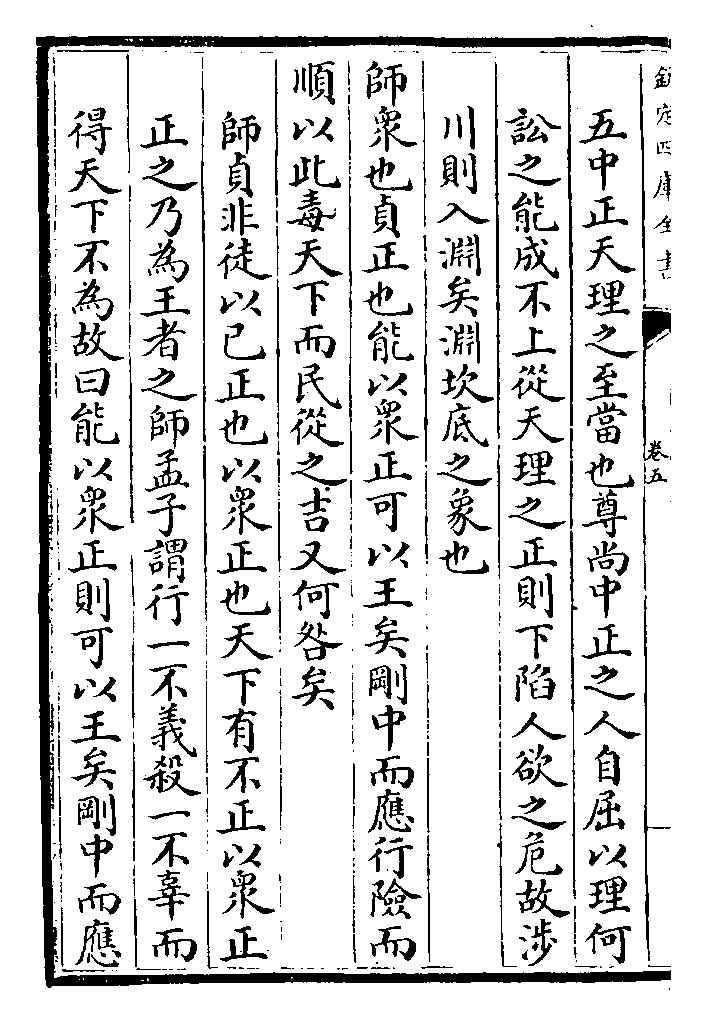 欽定四庫全書
卷五
五中正天理之至當也尊尚中正之人自屈以理何
訟之能成不上從天理之正則下陷人欲之危故涉
川則入淵矣淵坎底之象也
師衆也貞正也能以衆正可以王矣剛中而應行險而
順以此毒天下而民從之吉又何咎矣
師貞非徒以已正也以衆正也天下有不正以衆正
正之乃為王者之師孟子謂行一不義殺一不辜而
得天下不為故曰能以衆正則可以王矣剛中而應